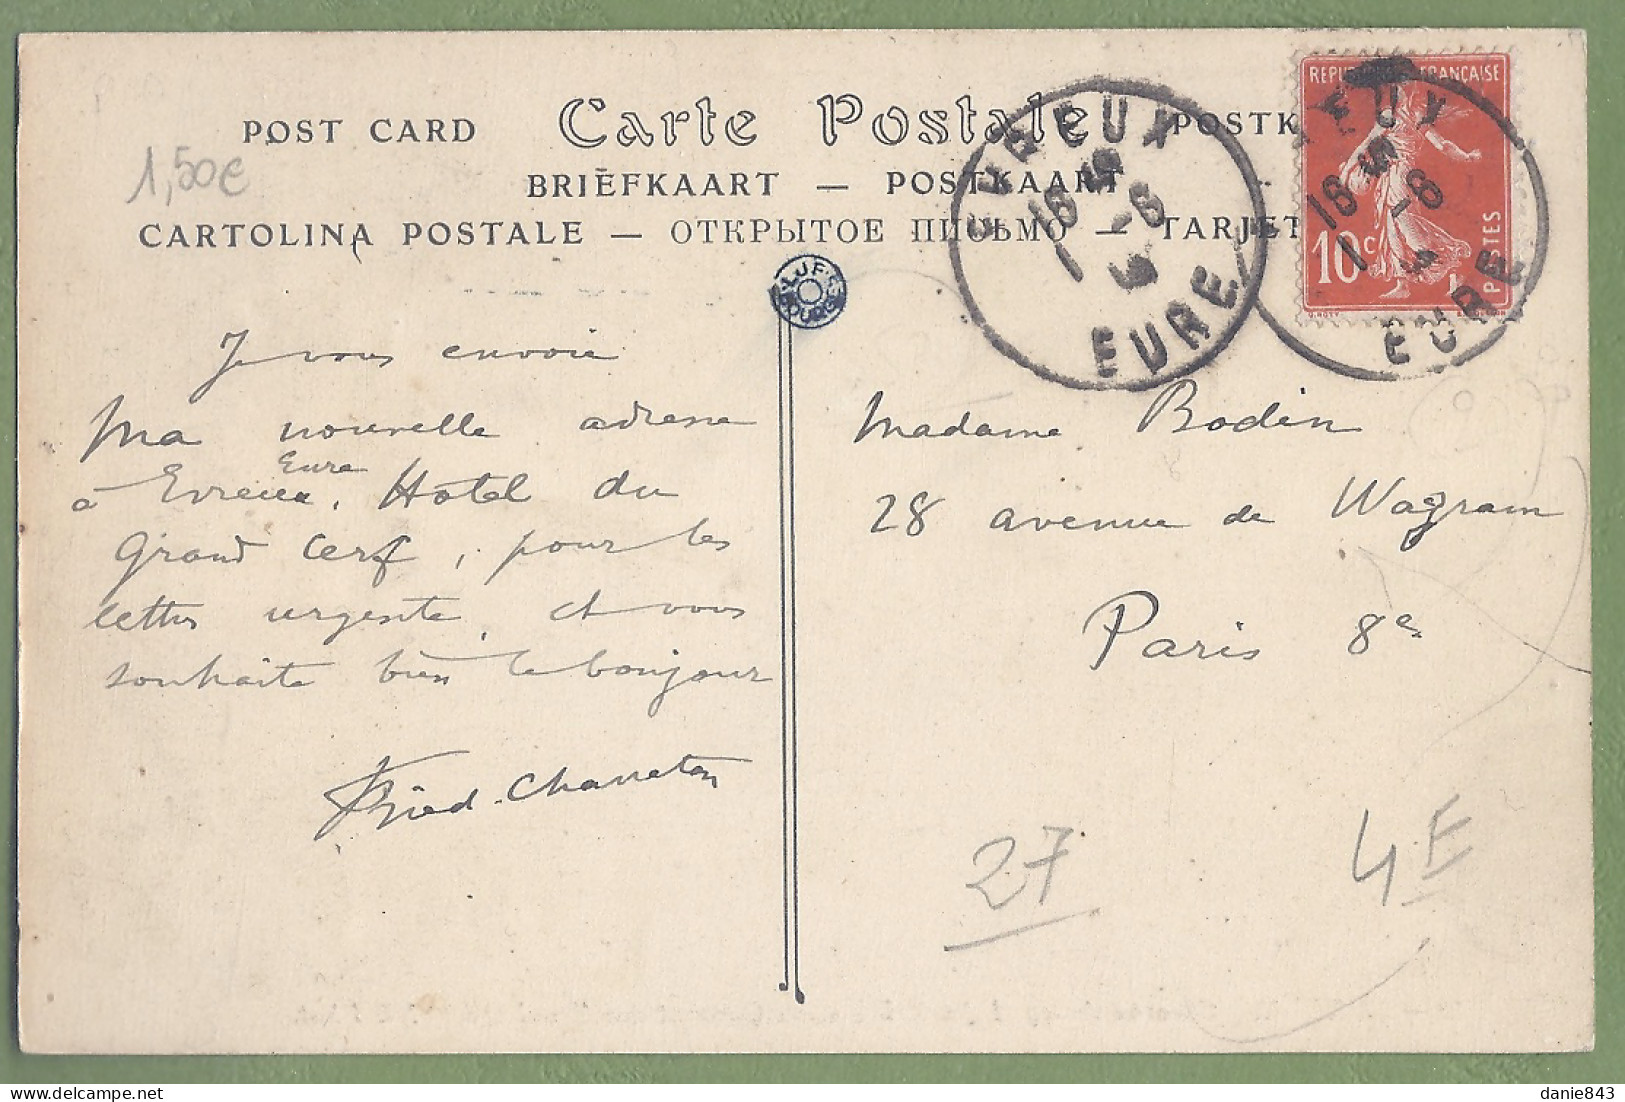 POST CARD Carte Postale POSTK
BRIEFKAART — POSTKAART
CARTOLINA POSTALE — ОТКРЫТОЕ ПИСЬМО — TARJET
1,50€
EVREUX
16 45
1 - 6
EURE
REPUBLIQUE FRANÇAISE
10c
POSTES
EUX
16 45
1 - 6
EURE
Je vous envoie
Ma nouvelle adresse
Eure
à Evreux. Hotel du
Grand Cerf, pour les
lettres urgente, et vous
souhaite bien le bonjour
Madame Bodin
28 avenue de Wagram
Paris 8e
27
4F
danie843